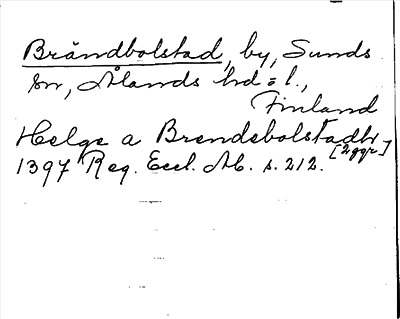 Brändbolstad, by, Sunds
sn, Ålands hd o l.,
Finland
Helge a Brendebolstadh
[2ggr]
1397 Reg. Eccl. Ab. s. 212.